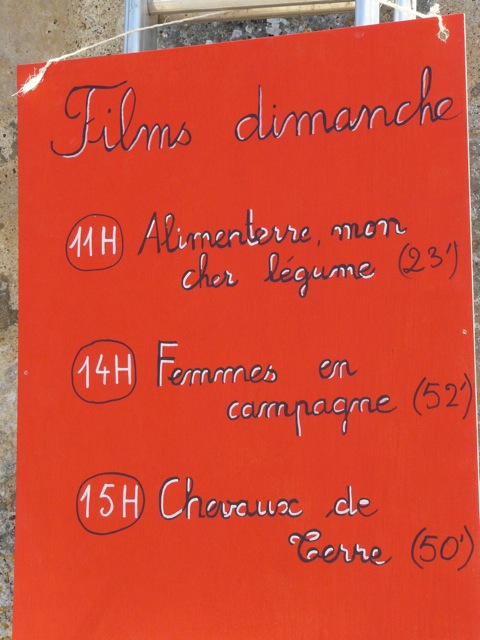 Films dimanche
11H Alimenterre, mon
cher légume (23')
14H Femmes en
campagne (52')
15H Chevaux de
Terre (50')